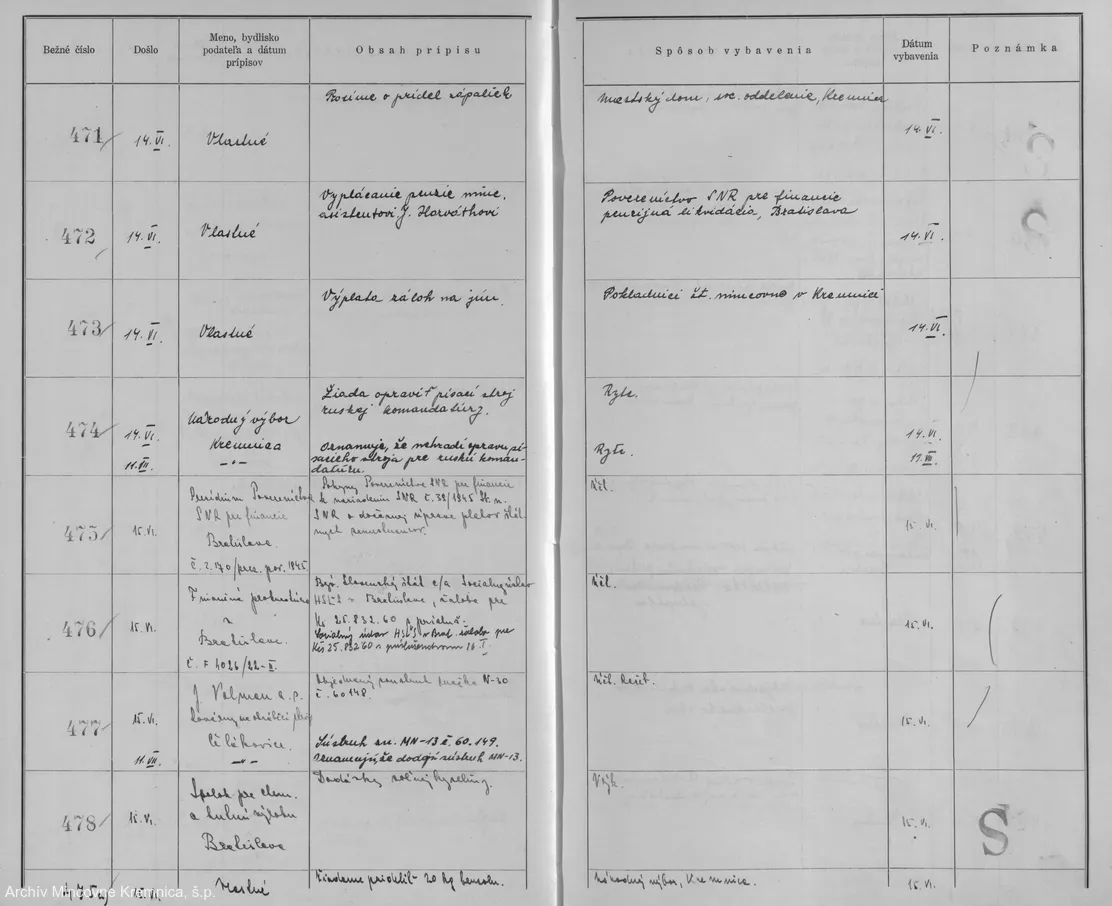 Bežné číslo
Došlo
Meno, bydlisko
podateľa a dátum
prípisov
Obsah prípisu
Spôsob vybavenia
Dátum
vybavenia
Poznámka
471
14. VI.
Vlastné
Prosíme o prídel zápaliek
Mestský dom, soc. oddelenie, Kremnica
14. VI.
472
14. VI.
Vlastné
Vyplácanie penzie minc.
asistentovi J. Horváthovi
Povereníctvo SNR pre financie
penzijná likvidácia, Bratislava
14. VI.
473
14. VI.
Vlastné
Výplata záloh na jún.
Pokladnici št. mincovne v Kremnici
14. VI.
474
14. VI.
11. VII.
Národný výbor
Kremnica
—„—
Žiada opraviť písací stroj
ruskej komandatúry.
Oznamuje, že nehradí opravu pí-
sacieho stroja pre ruskú koman-
datúru.
Ryte.
Ryte.
14. VI.
11. VII.
475
15. VI.
Prezídium Povereníctva
SNR pre financie
Bratislava.
č. 2.170/prez. pov. 1945
Pokyny Povereníctva SNR pre financie
k nariadeniu SNR č. 38/1945 Sb. n.
SNR o dočasnej úprave platov štát-
nych zamestnancov.
Úč.
15. VI.
476
15. VI.
Finančná prokuratúra
v
Bratislave.
č. F 4026/22-II.
Slovenský štát c/a Sociálny ústav
HSĽS v Bratislave, žaloba pre
Ks 25.832.60 s prísluš.
Sociálny ústav HSĽS v Brat. žaloba pre
Kčs 25.832 60 s príslušenstvom
Úč.
15. VI.
477
15. VI.
11. VII.
J. Volman a. s.
továrny na obráběcí
Čelákovice.
—„—
N-30
č. 60148.
Sústruh zn. MN-13 č. 60.149.
Oznamujú, že dodajú sústruh MN-13.
Úč.
15. VI.
478
15. VI.
Spolok pre chem.
a hutnú výrobu
Bratislava
Dodávky soľnej kyseliny.
15. VI.
S
15. VI.
Vlastné
Žiadame prideliť 20 kg benzolu.
Národný výbor, Kremnica.
15. VI.
Archív Mincovne Kremnica, š.p.